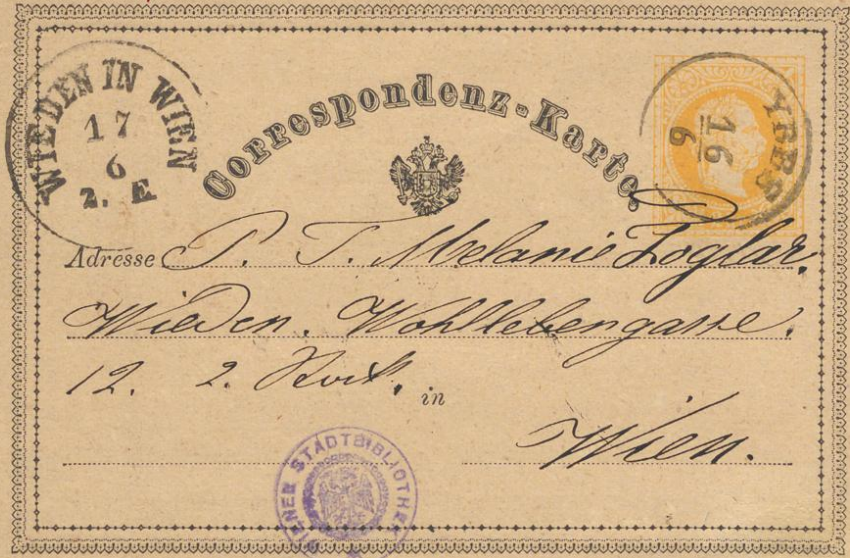 WIEDEN IN WIEN
17
6
2. E.
Correspondenz-Karte.
YBBS
16
6
Adresse P. T. Melanie Zoglar,
Wieden. Wohllebengasse.
12. 2. Stock. in
Wien.
WIENER STADTBIBLIOTHEK